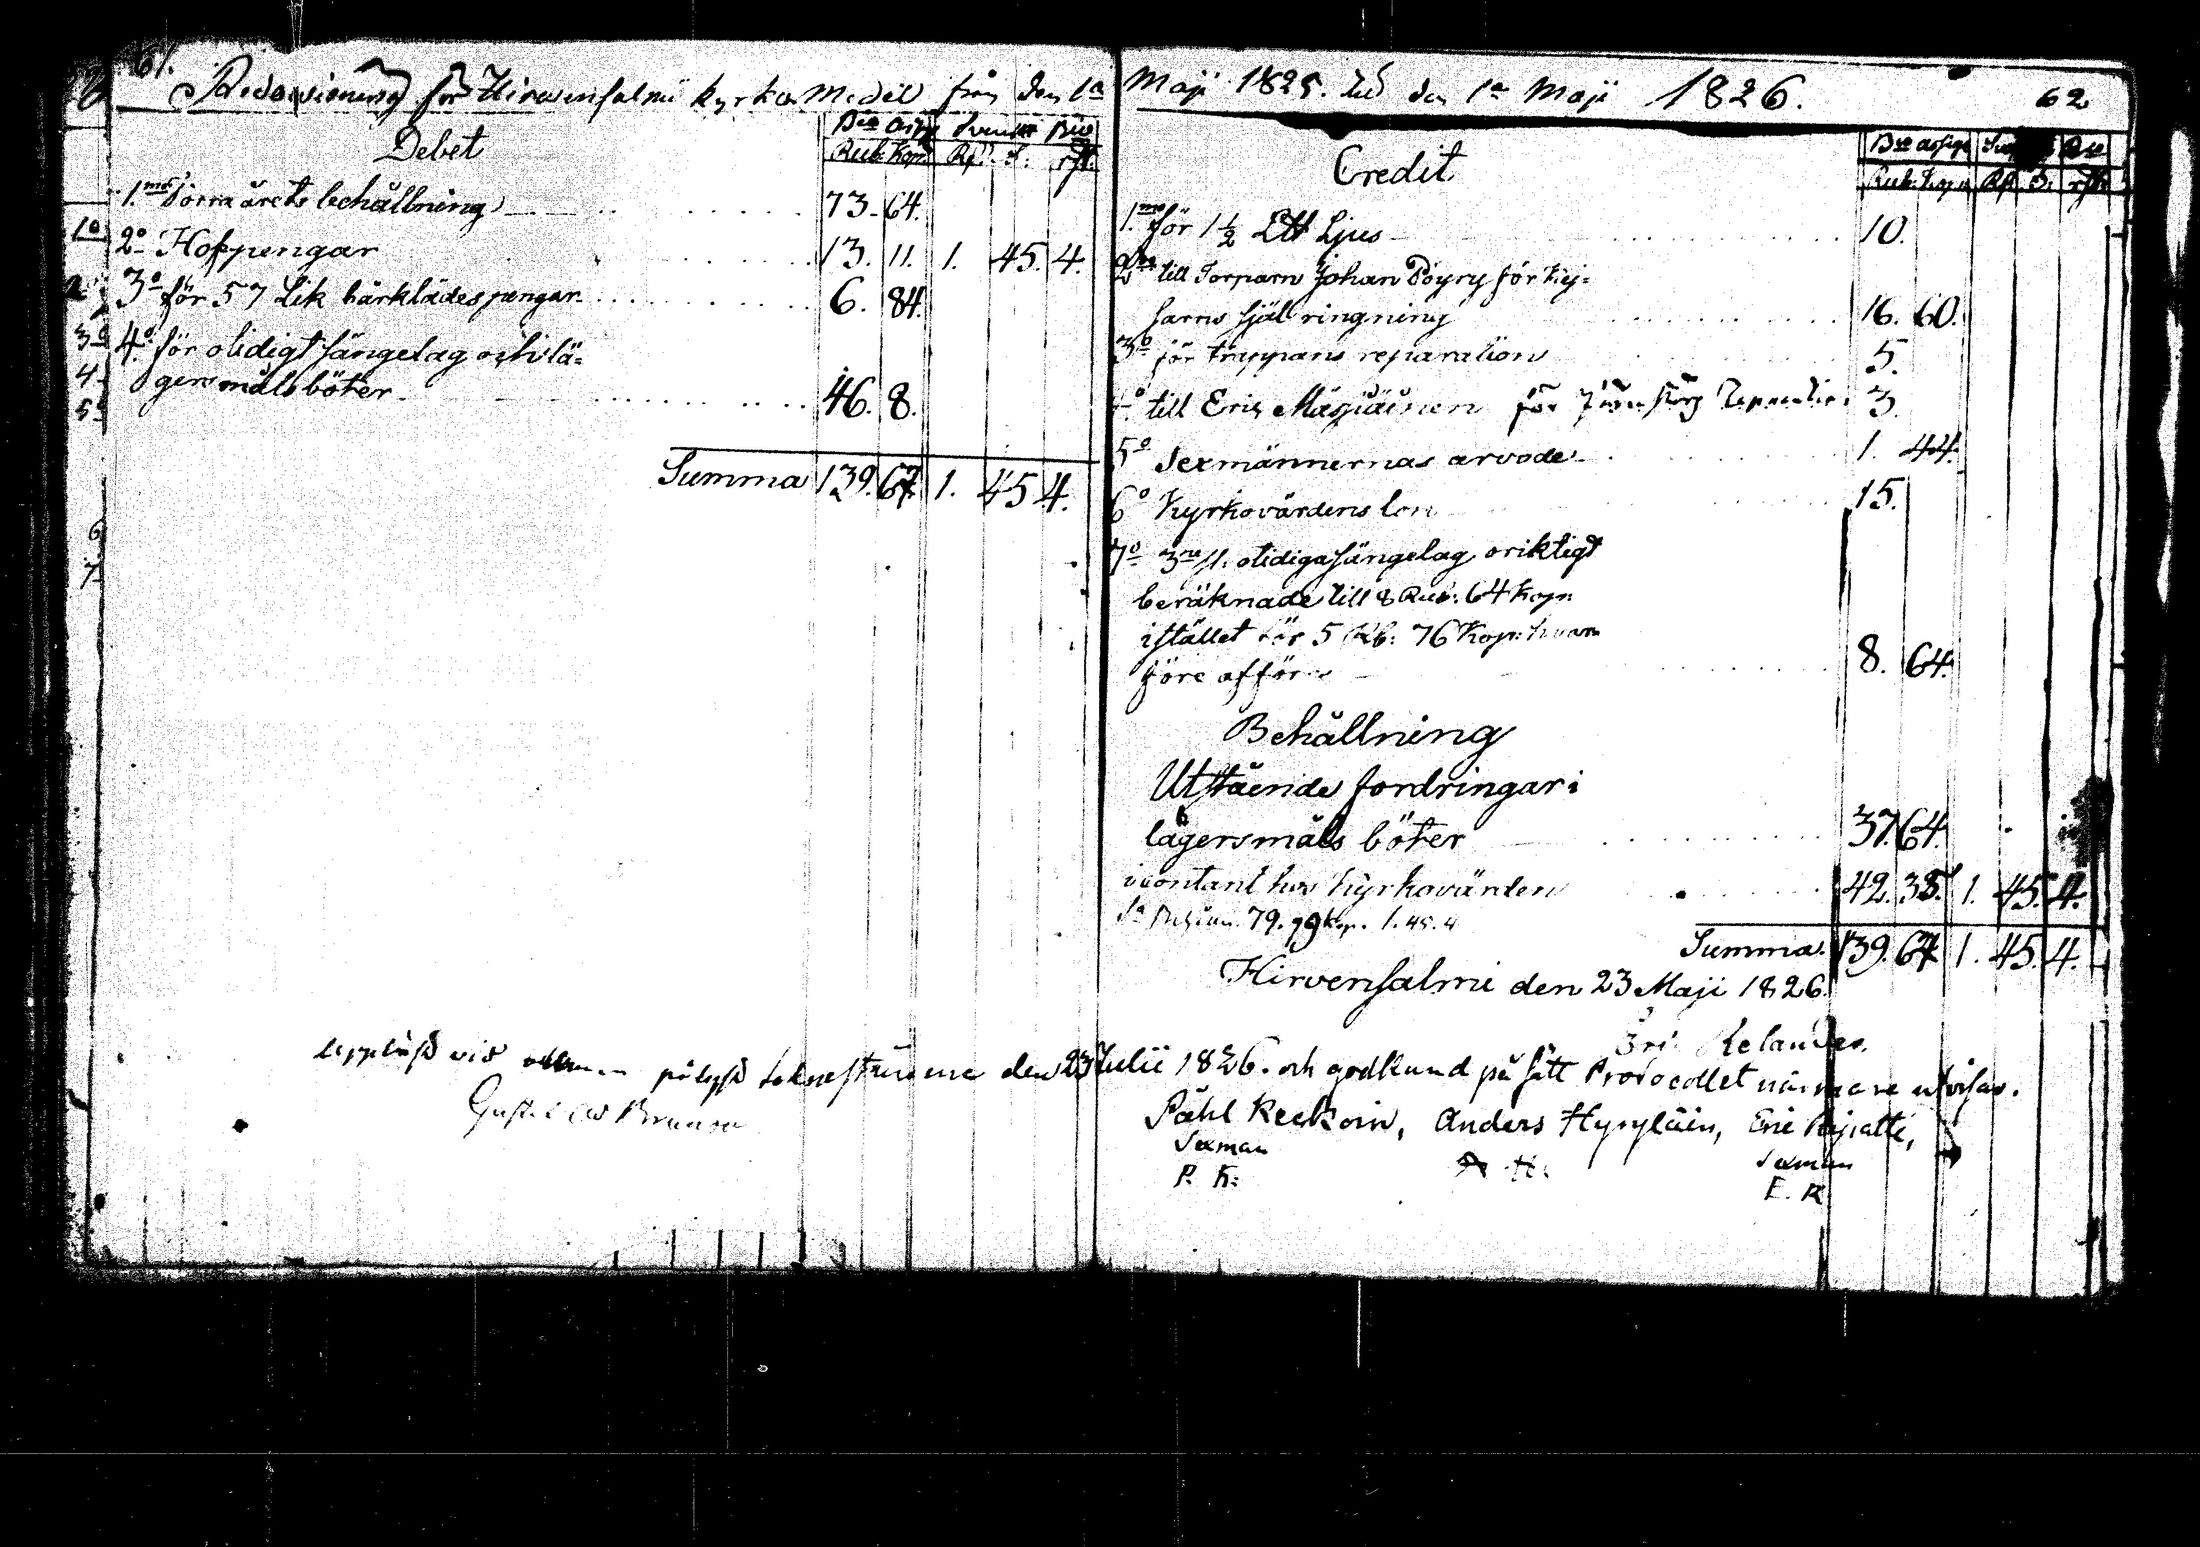 61.
Redovisning för Hirvensalmi kyrko Medel från den 1a Maji 1825. till den 1a Maji 1826.
62
Debet
Bco Assig Svenskt Bco
Rub. Kop. Rd. S. rst.
1mo Förra årets behållning 73. 64.
2o Hofpengar 13. 11. 1. 45. 4.
3o för 57 Lik bärklädespengar 6. 84.
4o för otidigt sängelag och lä-
gersmålsböter 46. 8.
Summa 139. 67. 1. 45. 4.
Credit
Bco assign Bco
Rub. Kop. Rd. S. rst.
1mo för 1 1/2 Ltt Ljus 10.
2do till Torparn Johan Pöyry för Kej-
sarns själringning 16. 60.
3o för trappans reparation 5.
4o till Eric Mänttäinen för 3.
5o Sexmännernas arvode 1. 44.
6o Kyrkovärdens lön 15.
7o 3ne st. otidiga sängelag oriktigt
beräknade till 8 Rub. 64 Kop.
istället för 5 Rb. 76 Kop. hvar-
före afföres 8. 64.
Behållning
Utstående fordringar i
lägersmåls böter 37. 64.
contant hos kyrkovärden 42. 35. 1. 45. 4.
79. 99 Kop. 1. 45. 4
Summa. 139. 67 1. 45. 4.
Hirvensalmi den 23 Maji 1826.
Eric Relander.
Uppläst vid pålyst soknestämma den 23 Julii 1826. och godkänd på sätt Protocollet närmare utvisar.
Påhl Keckoin, Anders Hyryläin, Eric
Sexman Sexman
P. K. A. H. E. R.